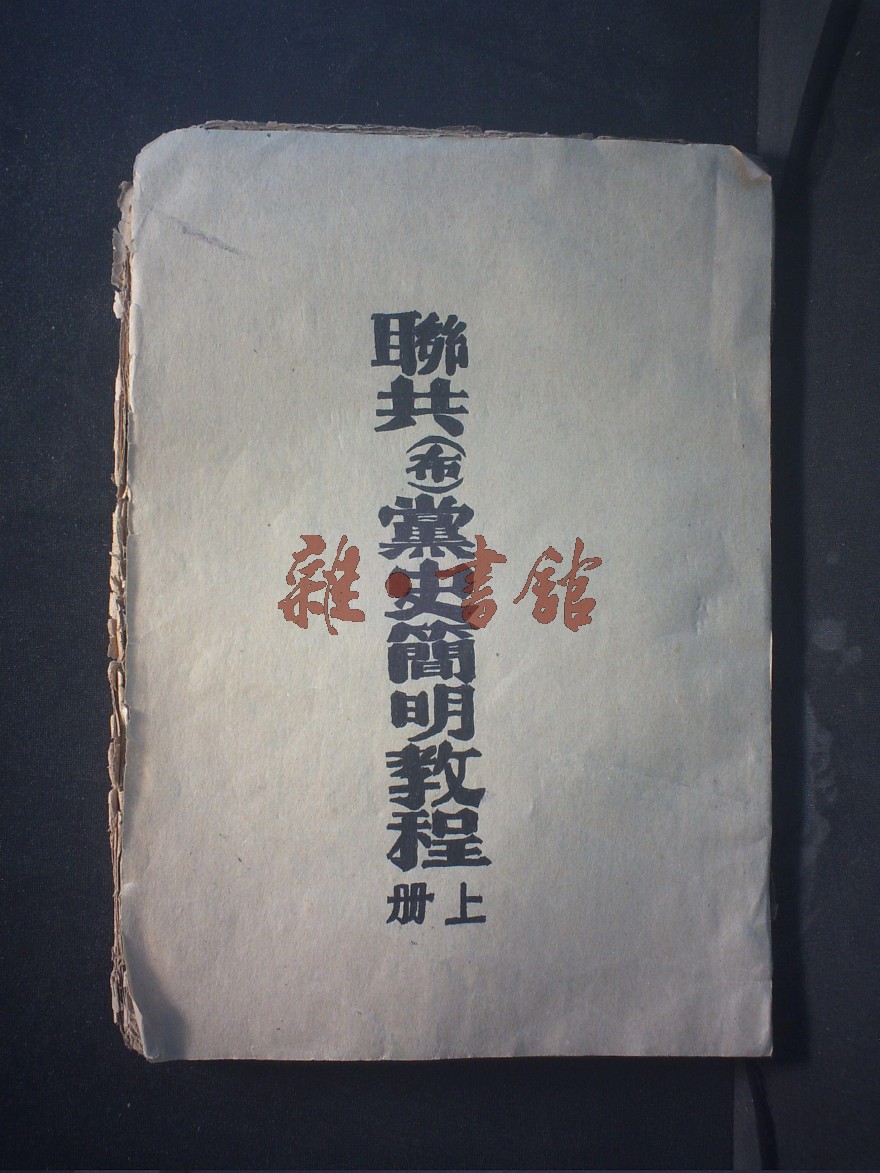 聯共(布)黨史簡明教程
上册
雜·書館